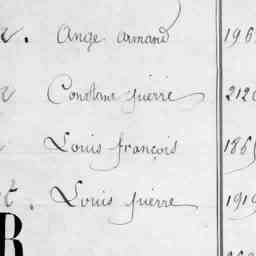 Ange armand 196
Constant pierre 212
Louis françois 186
t. Louis pierre 1919
B